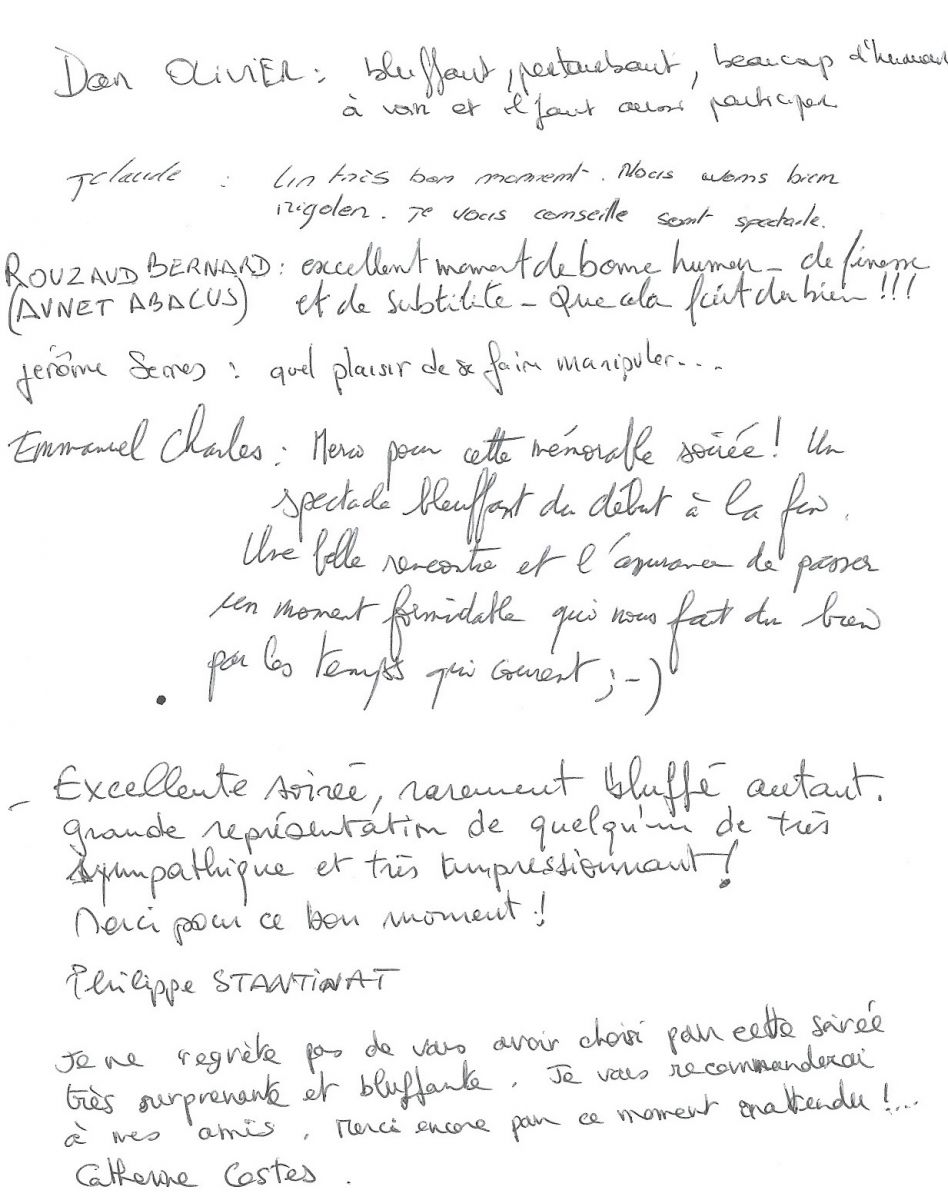 Dan OLIVIER : bluffant, perturbant, beaucap d'humour
à voir et il faut aussi participer
JClaude : Un très bon moment. Nous avons bien
rigoler. Je vous conseille sont spectacle.
ROUZAUD BERNARD : excellent moment de bonne humeur - de finesse
(AVNET ABACUS) et de subtilité - Que cela fait du bien !!!
jerôme Serres : quel plaisir de se faire manipuler...
Emmanuel Charles : Merci pour cette mémorable soirée ! Un
spectacle bluffant du début à la fin.
Une belle rencontre et l'assurance de passer
un moment formidable qui nous fait du bien
par les temps qui courent ;-)
- Excellente soirée, rarement bluffé autant.
grande représentation de quelqu'un de très
sympathique et très impressionnant !
Merci pour ce bon moment !
Philippe STANTINAT
Je ne regrète pas de vous avoir choisi pour cette soirée
très surprenante et bluffante. Je vous recommanderai
à mes amis. Merci encore pour ce moment inattendu !...
Catherine Costes.